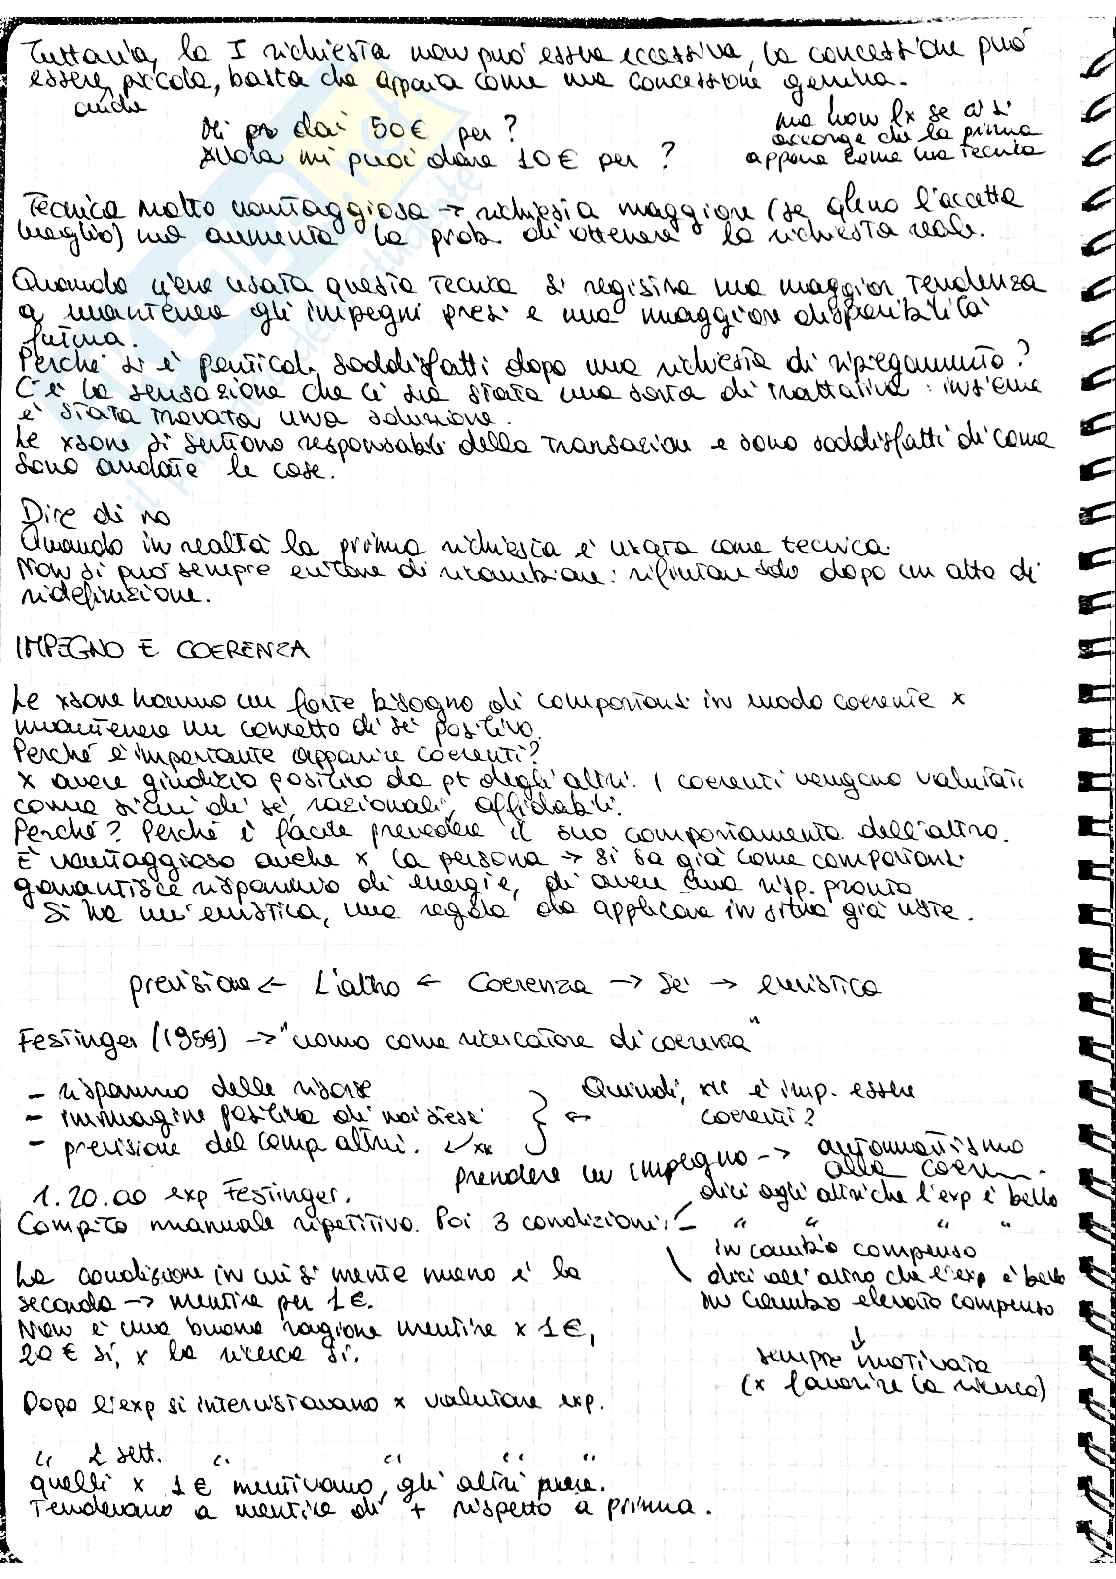 Tuttavia, la I richiesta non può essere eccessiva, la concessione può
essere piccola, basta che appaia come una concessione genuina.
anche
Mi pr dai 50€ per ?
Allora mi puoi dare 10€ per ?
ma non fx se ci si
accorge che la prima
appare come una tecnica
Tecnica molto vantaggiosa → richiesta maggiore (se gliela l'accetta
meglio) ma aumenta la prob. di ottenere la richiesta reale.
Quando viene usata questa tecnica si registra una maggior tendenza
a mantenere gli impegni presi e una maggiore disponibilità
futura.
Perché si è particol. soddisfatti dopo una richiesta di ripiegamento?
C'è la sensazione che ci sia stata una sorta di trattativa: insieme
è stata trovata una soluzione.
Le xsone si sentono responsabili della transazione e sono soddisfatti di come
sono andate le cose.
Dire di no
Quando in realtà la prima richiesta è usata come tecnica.
Non si può sempre evitare di ricambiare: rifiutare solo dopo un atto di
ridefinizione.
IMPEGNO E COERENZA
Le xsone hanno un forte bisogno di comportarsi in modo coerente x
mantenere un concetto di sé positivo.
Perché è importante apparire coerenti?
x avere giudizio positivo da pt degli altri. I coerenti vengono valutati
come sicuri di sé, razionali, affidabili.
Perché? Perché è facile prevedere il suo comportamento dell'altro.
È vantaggioso anche x la persona → si sa già come comportarsi
garantisce risparmio di energie, di avere una risp. pronta
Si ha un'euristica, una regola da applicare in situa già viste.
previsione ← L'altro ← Coerenza → Sé → euristica
Festinger (1959) → "uomo come ricercatore di coerenza"
- risparmio delle risorse
- immagine positiva di noi stessi
- previsione del comp altrui.
Quindi, xké è imp. essere
coerenti?
prendere un impegno → automatismo
alla coer
1.20.00 exp Festinger.
Compito manuale ripetitivo. Poi 3 condizioni:
dici agli altri che l'exp è bello
" " " "
in cambio compenso
dici all'altro che l'exp è bello
in cambio elevato compenso
La condizione in cui si mente meno è la
seconda → mentire per 1€.
Non è una buona ragione mentire x 1€,
20€ sì, x la ricerca sì.
sempre motivata
(x favorire la ricerca)
Dopo l'exp si intervistavano x valutare exp.
" 2 sett. " " " "
quelli x 1€ mentivano, gli altri
Tendevano a mentire di + rispetto a prima.